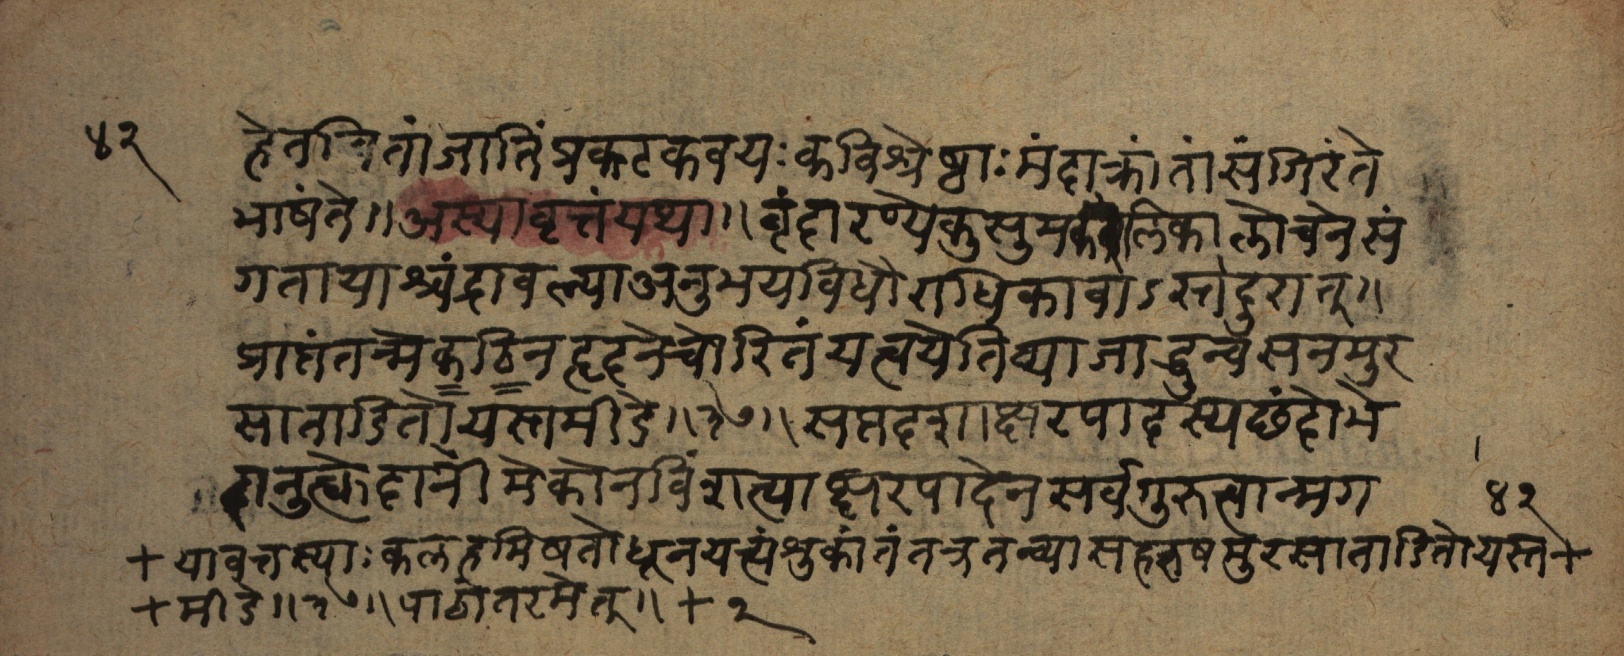 ४२ हेतन्वितां जातिं प्रकटकवयः कविश्रेष्ठाः मंदाक्रांतां संगिरंते
भाषंते ॥ अस्यावृत्तं यथा ॥ वृंदारण्ये कुसुमक लिका लोचने सं
गताया श्चंद्रावल्या अनुभयविधौ राधिका वोऽस्तदुरात् ॥
प्राप्तं तन्मे कठिनहृदने चोरितं यत्वयेति व्याजा द्धुन्व सनमुर
साताडितो यस्तमीडे ॥ १७ ॥ सप्तदशाक्षरपादस्य छंदोभे
दानुत्के दानीमेकोनविंशत्याक्षरपादेन सर्वगुरुत्वान्मग ४२
+ यावत्तस्याः कलहमिषतो धूनयत्त्यंशुकांतं तत्र तन्व्या सहरुषमुरसाताडितो यस्त +
+ मीडे ॥ १७ ॥ पाठांतरमेतत् ॥ + २